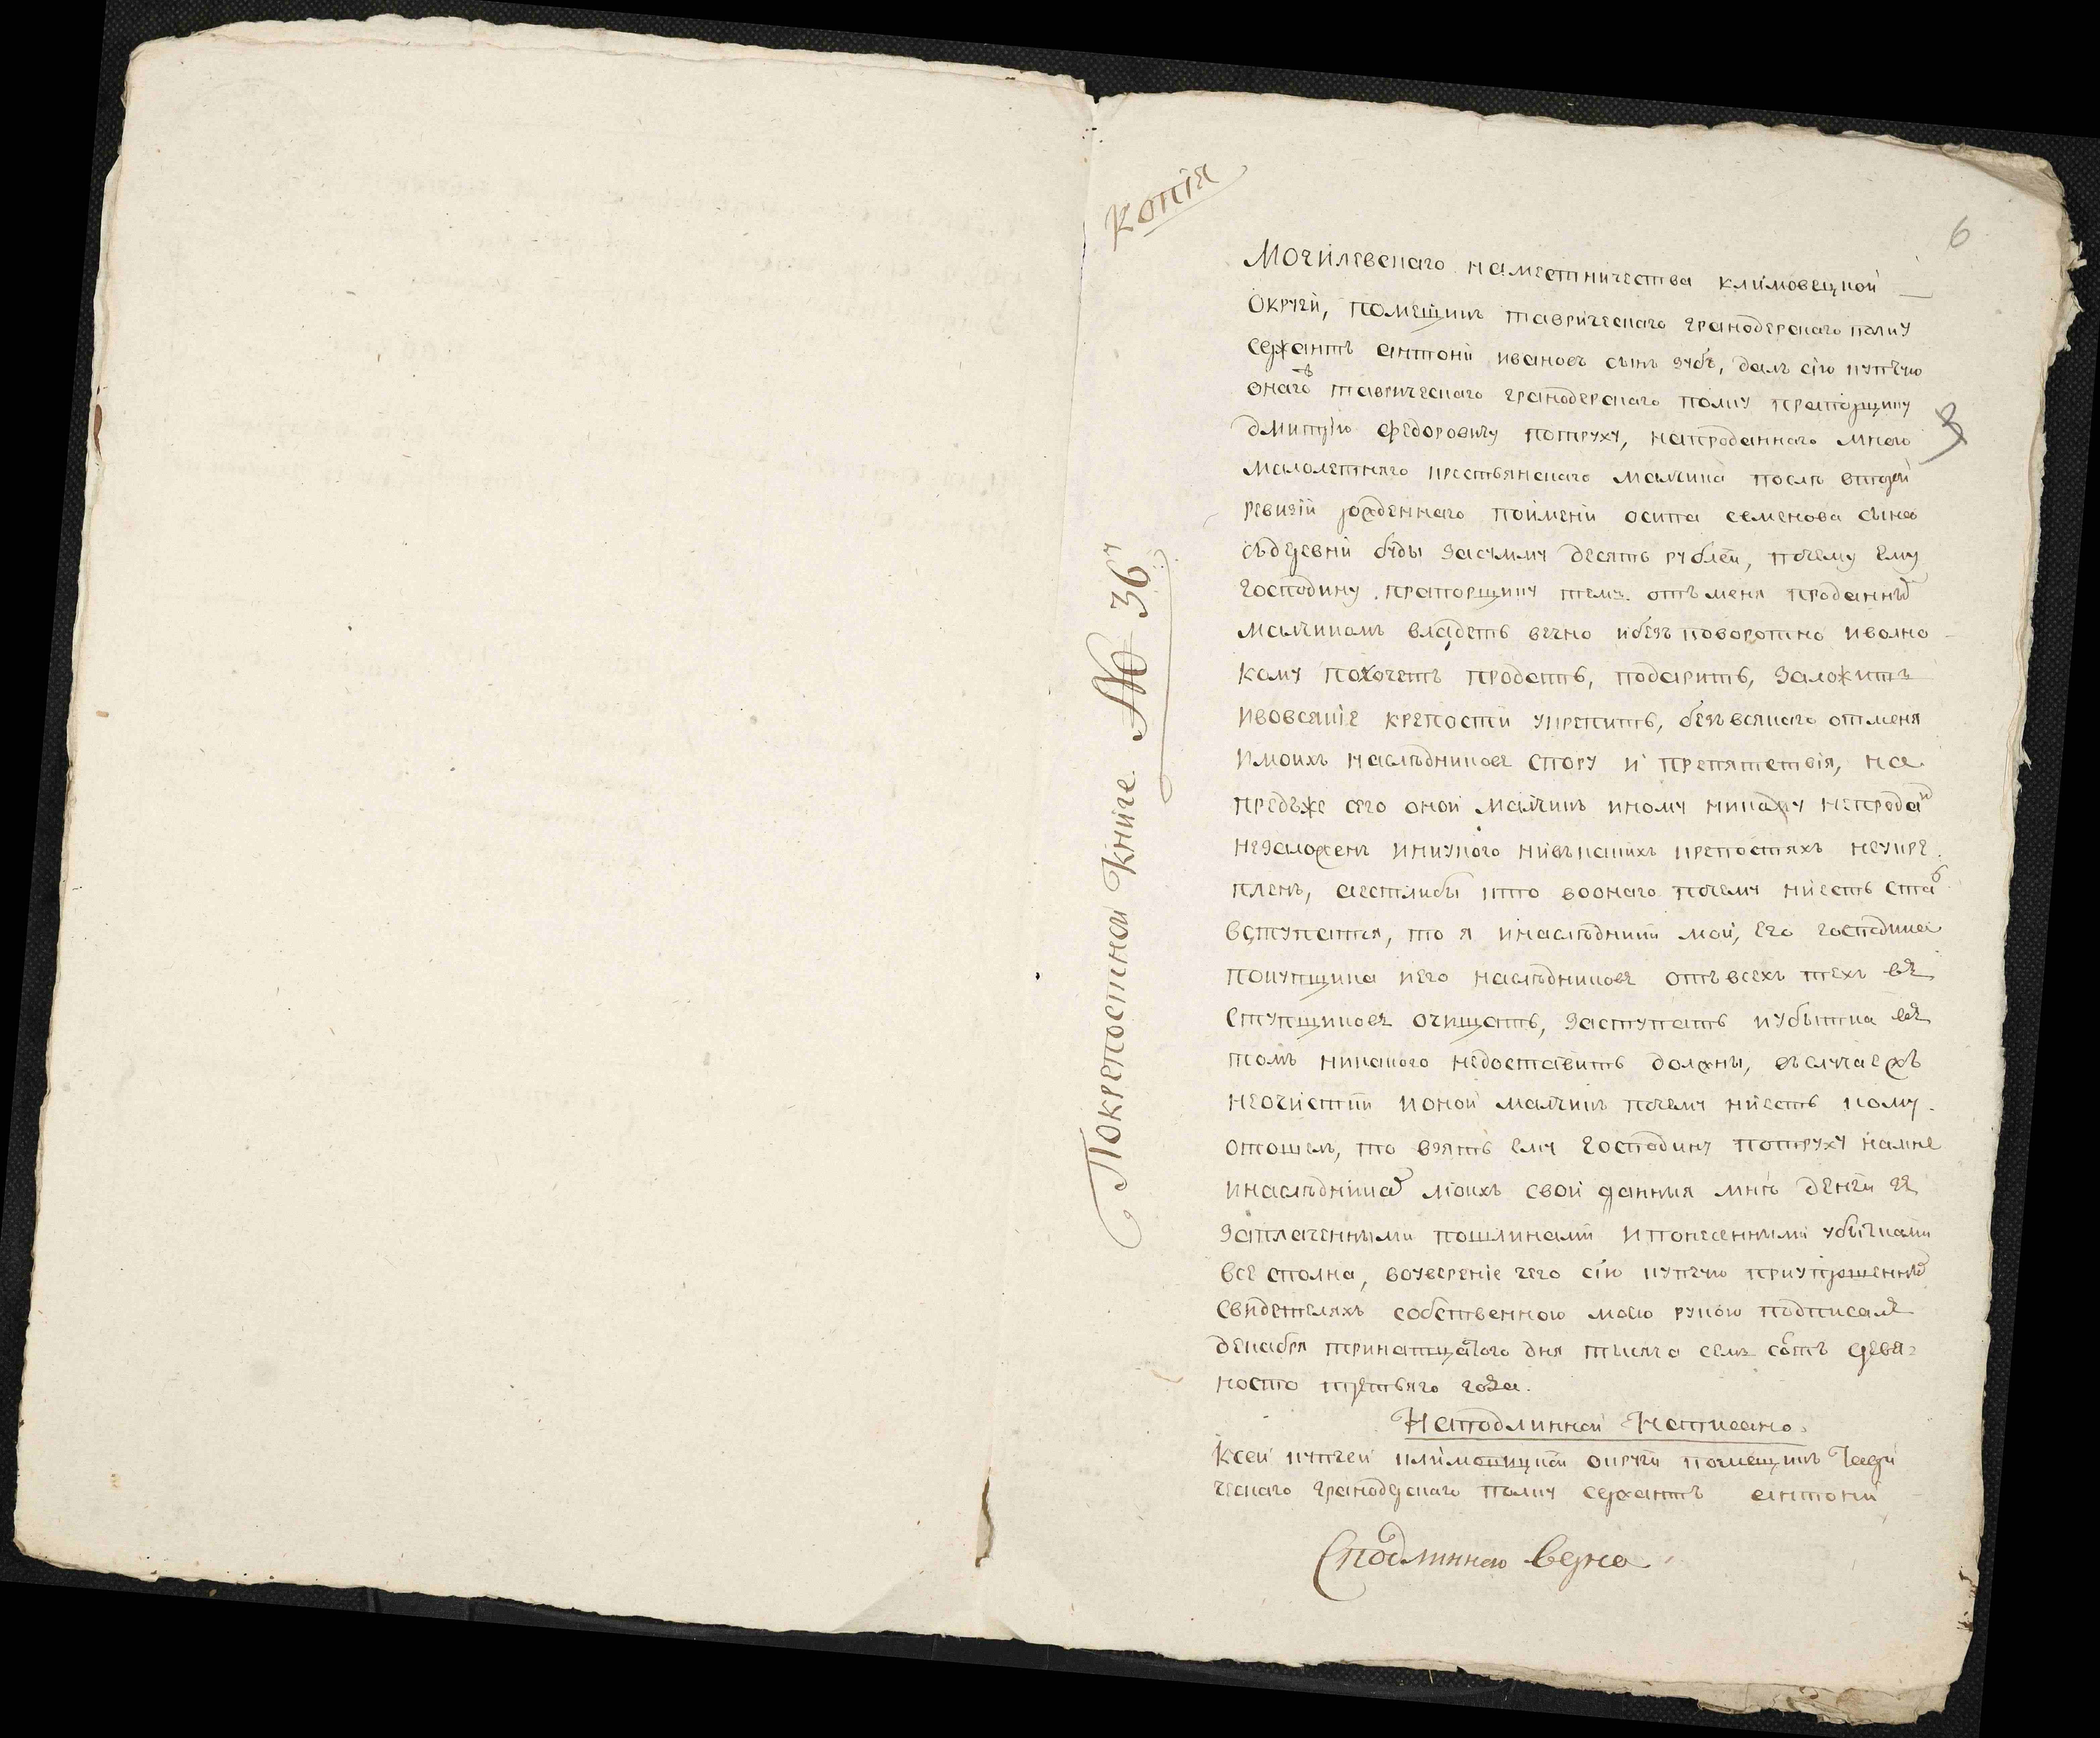 Копія
6
Могилевскаго наместничества климовецкой
Округи, помещикъ таврическаго гранодерскаго полку
сержантъ антони ивановъ сынъ зубъ, далъ сію купчую
онагожъ таврическаго гранодерскаго полку прапорщику
дмитрію федоровичу потруху, напроданнаго мною
малолетняго крестьянскаго малчика послѣ второй
ревизіи рожденнаго поимени осипа семенова сына
съдеревни буды засумму десять рублей, почему ему
господину прапорщику темъ отъ меня проданным
малчикомъ владеть вечно ибезъ поворотно иволно
кому похочетъ продать, подарить, заложить
ивовсякіе крепости укрепить, безъ всякаго отменя
имоихъ наслѣдниковъ спору и препятствія, на
предъже сего оной малчикъ иному никому непродан
незаложенъ иникого нивъкакихъ крепостяхъ неукре
пленъ, аестлибы кто вооного почему ниесть стал
вступатся, то я инаслѣдники мои, его господина
покупщика иего наслѣдниковъ отъ всехъ техъ въ
ступщиковъ очищать, заступать иубытка въ
томъ никакого недоставить должны, въслучаежъ
неочистки ионой малчикъ почему ниесть кому
отошелъ, то взять ему господину потруху намне
инаслѣдниках моихъ свои данныя мнѣ денги съ
заплаченными пошлинами ипонесенными убытками
все сполна, воуверение чего сію купчую приупрошенных
свидетеляхъ собственною моею рукою подписалъ
декабря тринатцатого дня тысяча семъ сотъ девя-
носто третьяго года.
Наподлинной Написано
Ксей купчей климовицкой округи помещикъ Таври
ческаго гранодерскаго полку сержантъ антони
Сподлинною верна
Покрепостной Книге № 36